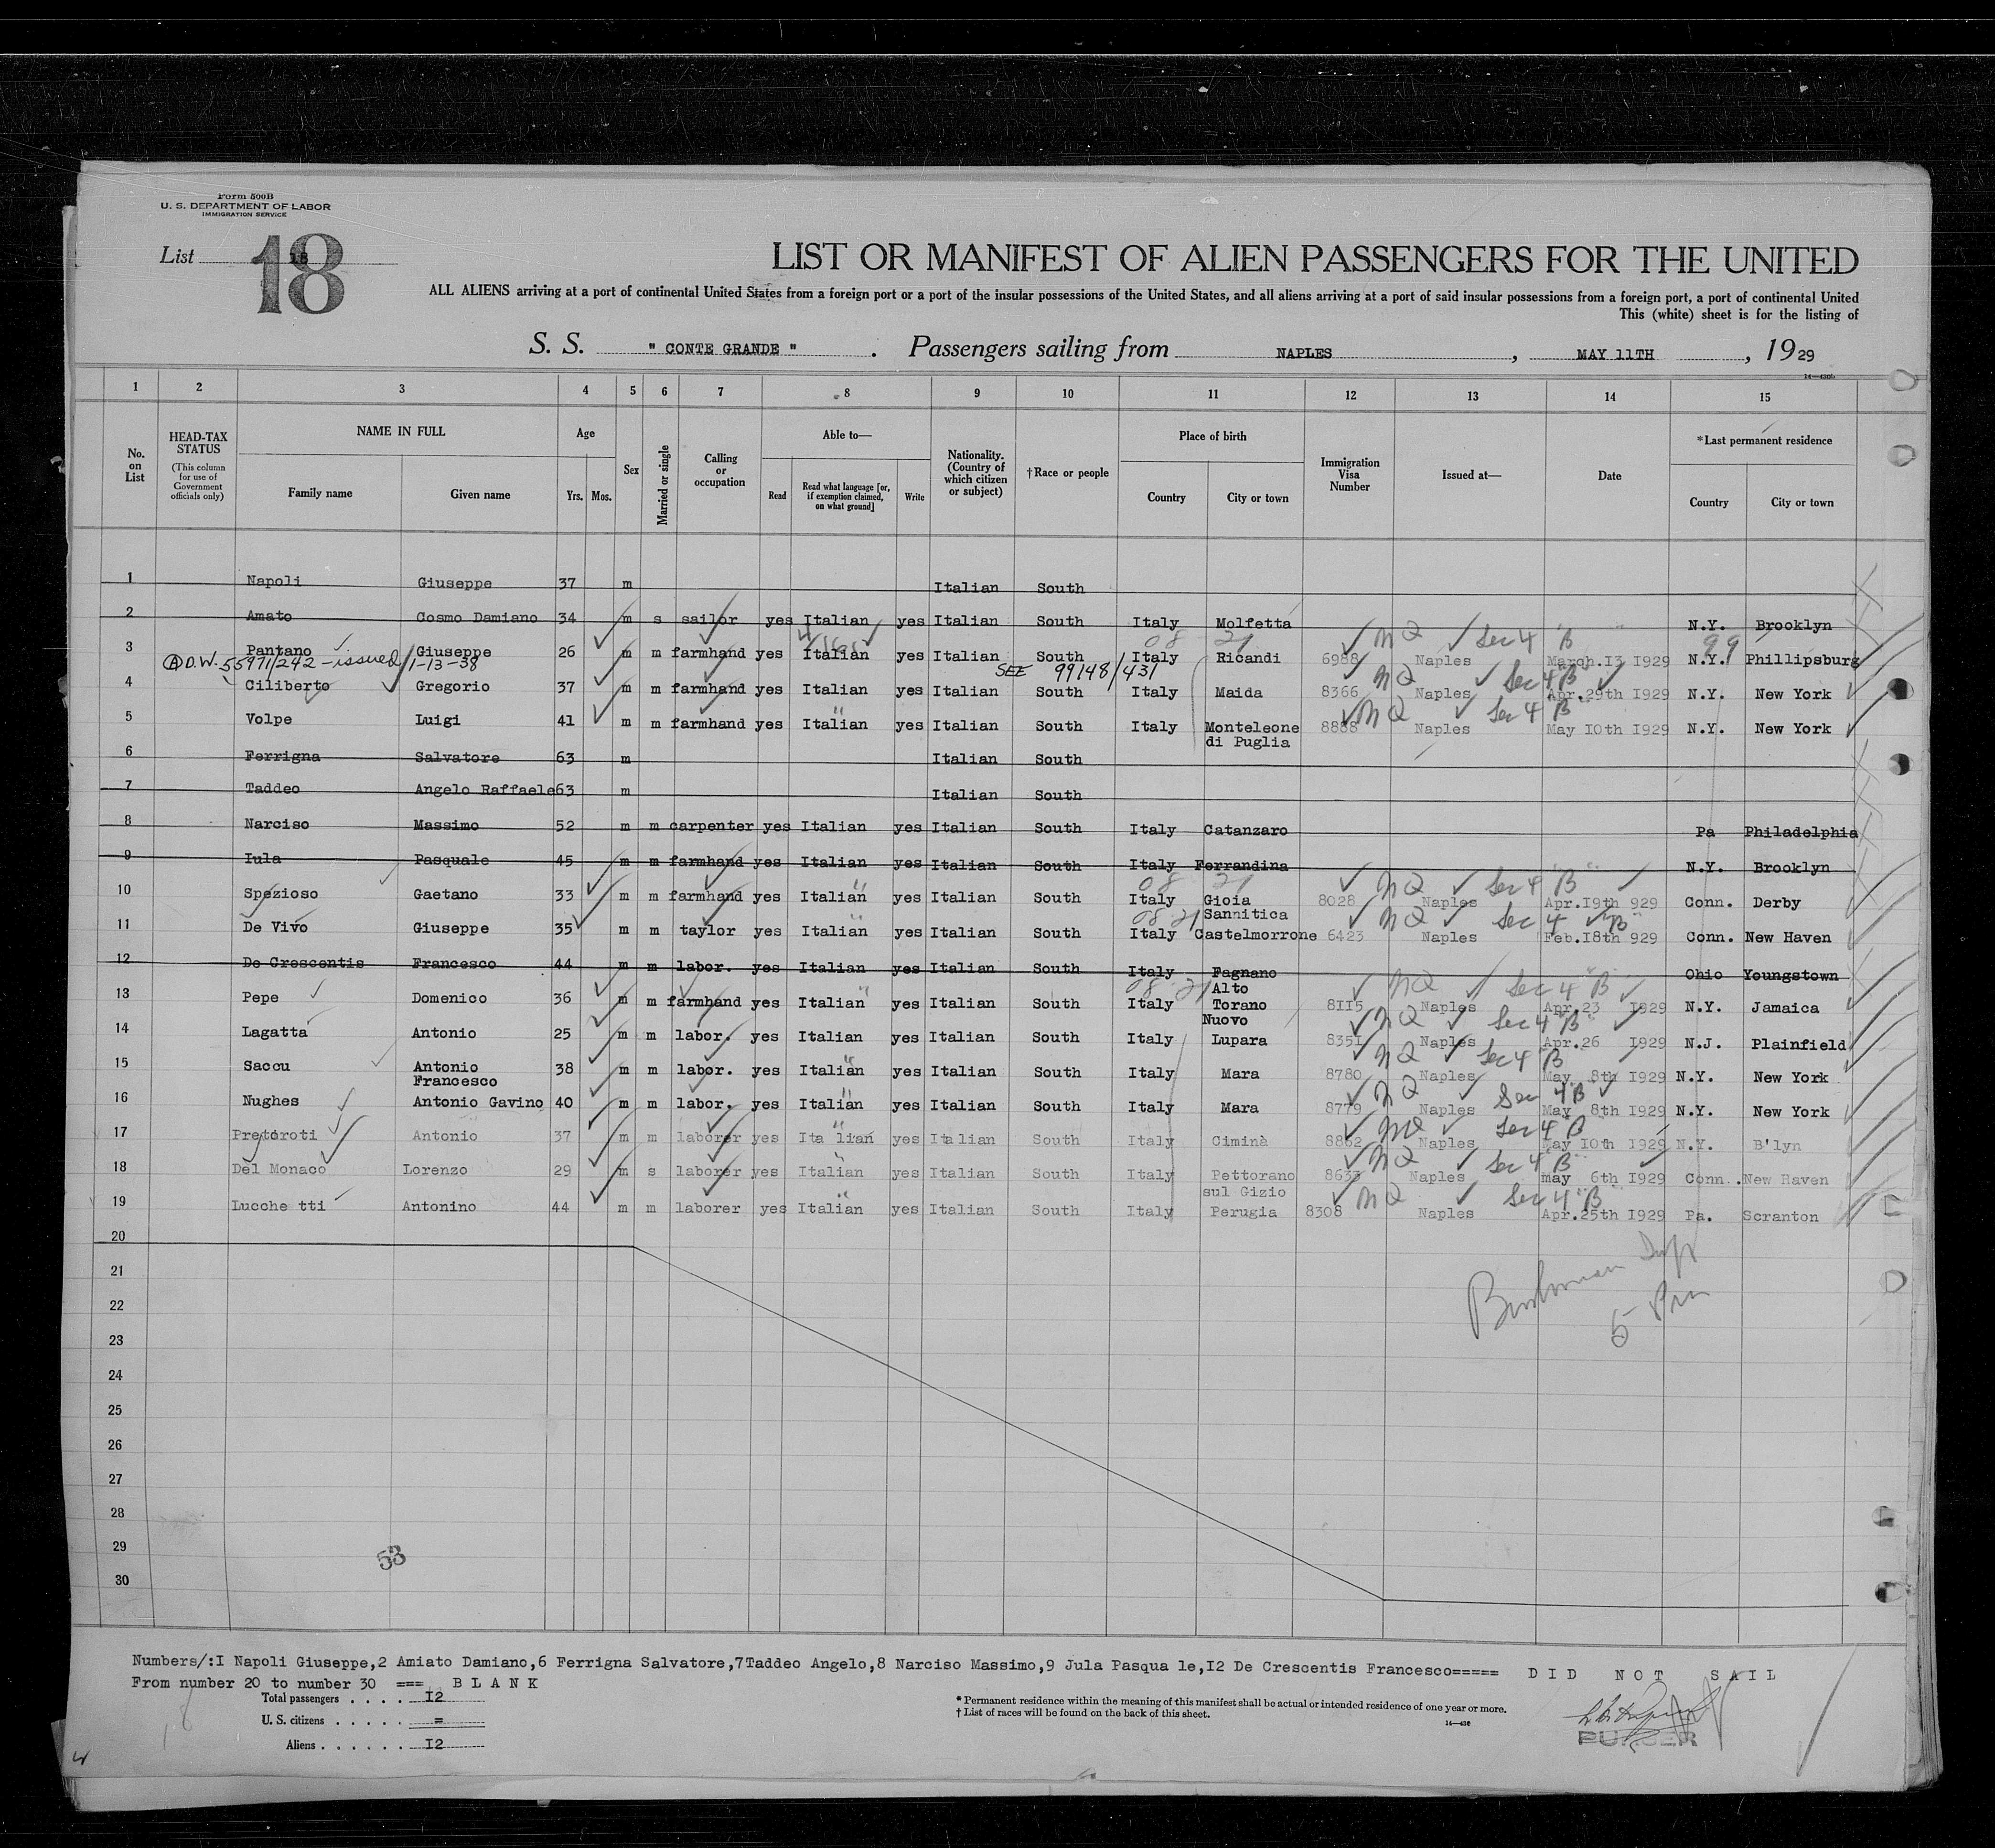 Form 500B
U. S. DEPARTMENT OF LABOR
IMMIGRATION SERVICE
List 18
18
LIST OR MANIFEST OF ALIEN PASSENGERS FOR THE UNITED
ALL ALIENS arriving at a port of continental United States from a foreign port or a port of the insular possessions of the United States, and all aliens arriving at a port of said insular possessions from a foreign port, a port of continental United
This (white) sheet is for the listing of
S. S. " CONTE GRANDE " . Passengers sailing from NAPLES , MAY 11TH , 1929
1 2 3 4 5 6 7 8 9 10 11 12 13 14 15
No. on List
HEAD-TAX STATUS (This column for use of Government officials only)
NAME IN FULL Family name Given name
Age Yrs. Mos.
Sex
Married or single
Calling or occupation
Able to— Read Read what language [or, if exemption claimed, on what ground] Write
Nationality. (Country of which citizen or subject)
†Race or people
Place of birth Country City or town
Immigration Visa Number
Issued at—
Date
*Last permanent residence Country City or town
1 Napoli Giuseppe 37 m Italian South
2 Amato Cosmo Damiano 34 m s sailor yes Italian yes Italian South Italy Molfetta N.Y. Brooklyn
08 21 NQ Sec 4 B 99
3 Pantano Giuseppe 26 m m farmhand yes Italian yes Italian South Italy Ricandi 6988 Naples March.13 1929 N.Y. Phillipsburg
A D.W. 55971/242 - issued 1-13-38 SEE 99148/431 NQ Sec 4 B
4 Ciliberto Gregorio 37 m m farmhand yes Italian yes Italian South Italy Maida 8366 Naples Apr.29th 1929 N.Y. New York
NQ Sec 4 B
5 Volpe Luigi 41 m m farmhand yes Italian yes Italian South Italy Monteleone di Puglia 8888 Naples May 10th 1929 N.Y. New York
6 Ferrigna Salvatore 63 m Italian South
7 Taddeo Angelo Raffaele 63 m Italian South
8 Narciso Massimo 52 m m carpenter yes Italian yes Italian South Italy Catanzaro Pa Philadelphia
9 Iula Pasquale 45 m m farmhand yes Italian yes Italian South Italy Ferrandina N.Y. Brooklyn
08 21 NQ Sec 4 B
10 Spezioso Gaetano 33 m m farmhand yes Italian yes Italian South Italy Gioia Sannitica 8028 Naples Apr.19th 929 Conn. Derby
08 21 NQ Sec 4 B
11 De Vivo Giuseppe 35 m m taylor yes Italian yes Italian South Italy Castelmorrone 6423 Naples Feb.18th 929 Conn. New Haven
12 De Crescentis Francesco 44 m m labor. yes Italian yes Italian South Italy Fagnano Alto Ohio Youngstown
08 21 NQ Sec 4 B
13 Pepe Domenico 36 m m farmhand yes Italian yes Italian South Italy Torano Nuovo 8115 Naples Apr.23 1929 N.Y. Jamaica
NQ Sec 4 B
14 Lagatta Antonio 25 m m labor. yes Italian yes Italian South Italy Lupara 8351 Naples Apr.26 1929 N.J. Plainfield
NQ Sec 4 B
15 Saccu Antonio Francesco 38 m m labor. yes Italian yes Italian South Italy Mara 8780 Naples May 8th 1929 N.Y. New York
NQ Sec 4 B
16 Nughes Antonio Gavino 40 m m labor. yes Italian yes Italian South Italy Mara 8779 Naples May 8th 1929 N.Y. New York
NQ Sec 4 B
17 Pretoroti Antonio 37 m m laborer yes Ita lian yes Italian South Italy Ciminà 8862 Naples May 10th 1929 N.Y. B'lyn
NQ Sec 4 B
18 Del Monaco Lorenzo 29 m s laborer yes Italian yes Italian South Italy Pettorano sul Gizio 8633 Naples may 6th 1929 Conn. New Haven
NQ Sec 4 B
19 Lucche tti Antonino 44 m m laborer yes Italian yes Italian South Italy Perugia 8308 Naples Apr.25th 1929 Pa. Scranton
20
21
22
23
24
25
26
27
28
29
30
53
Numbers/:I Napoli Giuseppe,2 Amiato Damiano,6 Ferrigna Salvatore,7Taddeo Angelo,8 Narciso Massimo,9 Jula Pasqua le,I2 De Crescentis Francesco===== D I D N O T S A I L
From number 20 to number 30 === B L A N K
Total passengers . . . . I2
U. S. citizens . . . . . =
Aliens . . . . . . I2
* Permanent residence within the meaning of this manifest shall be actual or intended residence of one year or more.
† List of races will be found on the back of this sheet.
PURSER